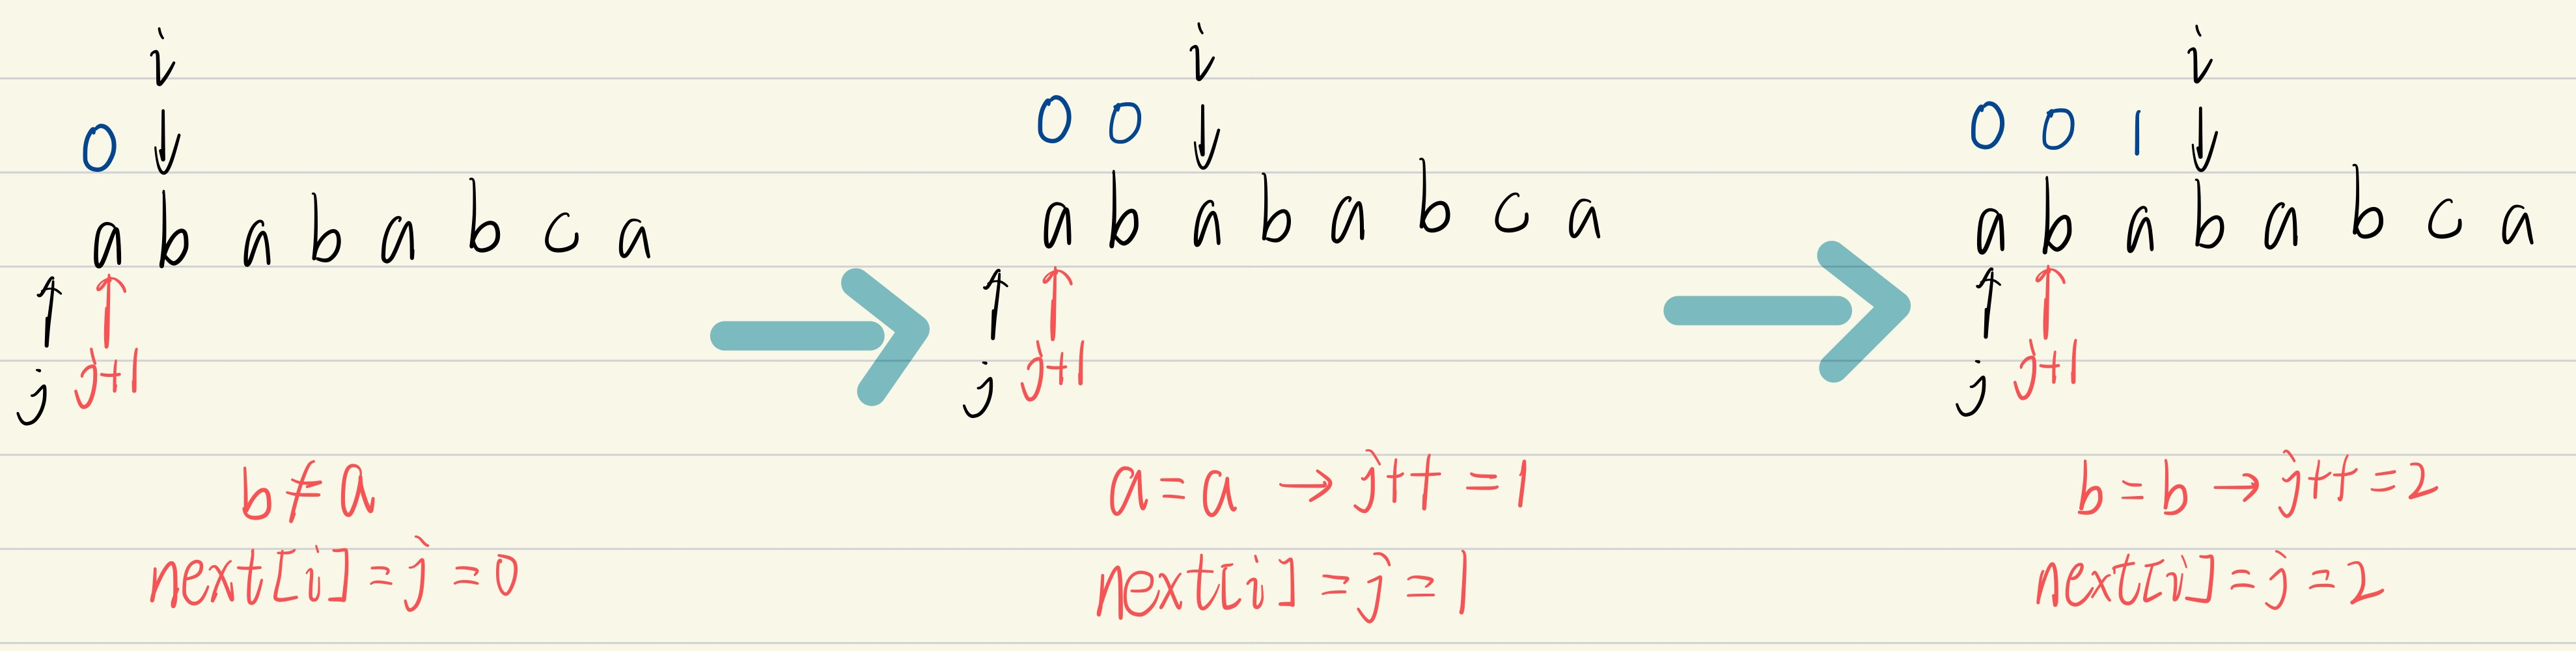 i
0
a b a b a b c a
j j+1
b ≠ a
next[i] = j = 0
i
0 0
a b a b a b c a
j j+1
a = a → j++ = 1
next[i] = j = 1
i
0 0 1
a b a b a b c a
j j+1
b = b → j++ = 2
next[i] = j = 2